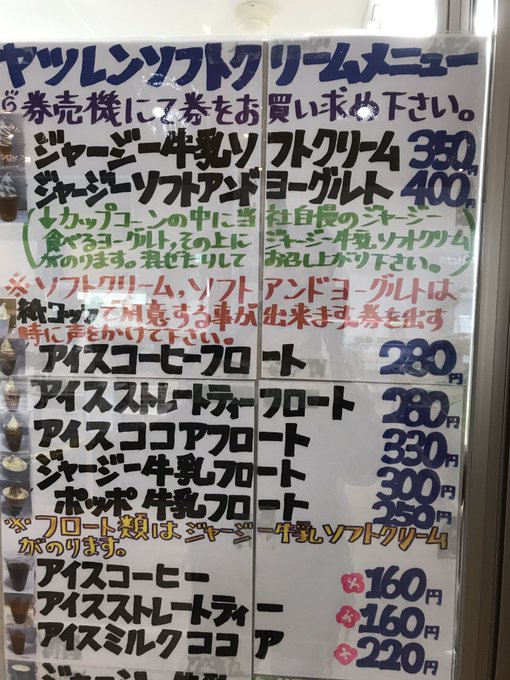 ヤツレンソフトクリームメニュー
券売機にて券をお買い求め下さい。
ジャージー牛乳ソフトクリーム 350円
ジャージーソフトアンドヨーグルト 400円
(↓カップコーンの中に当社自慢のジャージー
食べるヨーグルト,その上にジャージー牛乳ソフトクリーム
がのります。混ぜたりしてお召し上がり下さい。)
※ソフトクリーム,ソフトアンドヨーグルトは
紙コップで用意する事が出来ます。券を出す
時に声をかけて下さい。
アイスコーヒーフロート 280円
アイスストレートティーフロート 280円
アイスココアフロート 330円
ジャージー牛乳フロート 300円
ポッポ牛乳フロート 250円
※フロート類はジャージー牛乳ソフトクリーム
がのります。
アイスコーヒー 160円
アイスストレートティー 160円
アイスミルクココア 220円
ジャージー牛乳